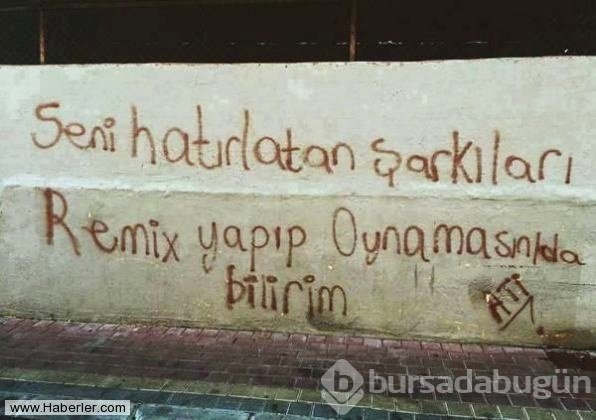 Seni hatırlatan şarkıları
Remix yapıp Oynamasınıda
bilirim
ATİ
bursadabugün
www.Haberler.com